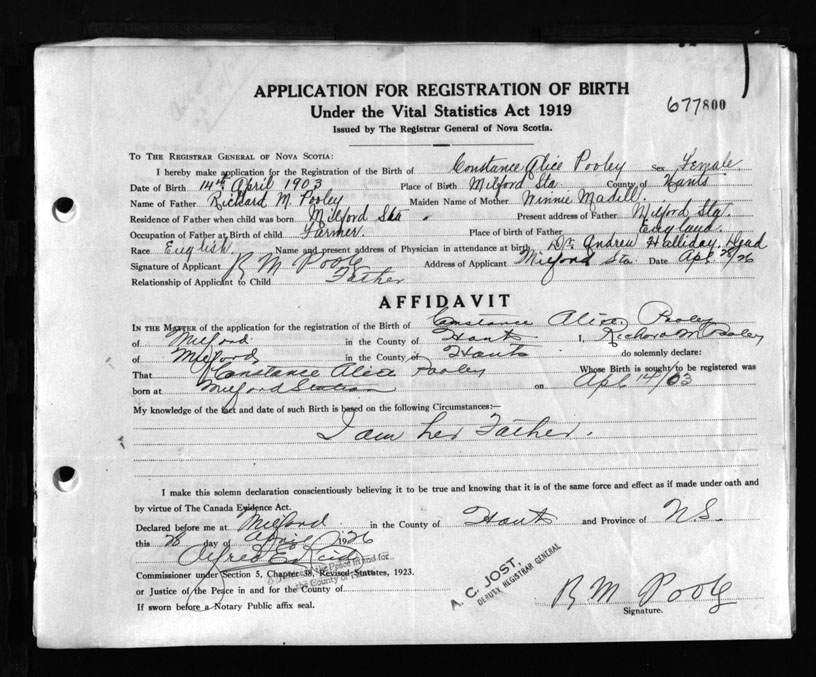 APPLICATION FOR REGISTRATION OF BIRTH
Under the Vital Statistics Act 1919
Issued by The Registrar General of Nova Scotia.
677800
TO THE REGISTRAR GENERAL OF NOVA SCOTIA:
I hereby make application for the Registration of the Birth of Constance Alice Pooley Sex Female
Date of Birth 14th April 1903 Place of Birth Milford Sta. County of Hants
Name of Father Richard M. Pooley Maiden Name of Mother Winnie Madill
Residence of Father when child was born Milford Sta Present address of Father Milford Sta.
Occupation of Father at Birth of child Farmer. Place of birth of Father England.
Race English. Name and present address of Physician in attendance at birth Dr. Andrew Halliday, Dead
Signature of Applicant R M Pooley Address of Applicant Milford Sta Date Apl 28/26
Relationship of Applicant to Child Father
AFFIDAVIT
IN THE MATTER of the application for the registration of the Birth of Constance Alice Pooley
of Milford in the County of Hants I, Richard M Pooley
of Milford in the County of Hants do solemnly declare:
That Constance Alice Pooley Whose Birth is sought to be registered was
born at Milford Station on Apl 14/03
My knowledge of the fact and date of such Birth is based on the following Circumstances:—
I am her Father.
I make this solemn declaration conscientiously believing it to be true and knowing that it is of the same force and effect as if made under oath and
by virtue of The Canada Evidence Act.
Declared before me at Milford in the County of Hants and Province of N.S.
this 28 day of April 1926
Alfred E.
Commissioner under Section 5, Chapter 38, Revised Statutes, 1923.
or Justice of the Peace in and for the County of
If sworn before a Notary Public affix seal.
of the Peace in and for
the County of
A. C. JOST,
DEPUTY REGISTRAR GENERAL
R M Pooley
Signature.